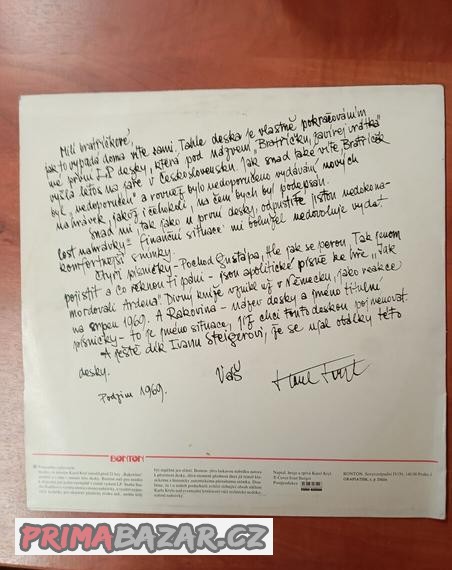 Milí bratříčkové,
jak to vypadá doma víte sami. Tahle deska je vlastně pokračováním
mé první LP desky, která pod názvem „Bratříčku, zavírej vrátka“
vyšla letos na jaře v Československu. Jak snad také víte Bratříček
byl „nedoporučen“ a rovněž bylo nedoporučeno vydávání nových
nahrávek, jakož i čehokoli, na čem bych byl podepsán.
Snad mi, tak jako u první desky, odpustíte jistou nedokona-
lost nahrávky. Finanční situace mi bohužel nedovoluje vydat
komfortnější snímky.
Čtyři písničky – Pochod Gustapa, Hle jak se perou, Tak jenom
pojistit a Co řeknou ti páni – jsou apolitické písně ke hře „Jak
mordovali Ardena“. Divný kníže vznikl už v Německu, jako reakce
na srpen 1969. A Rakovina – název desky a jméno titulní
písničky – to je jméno situace, jíž chci touto deskou pojmenovat.
A ještě dík Ivanu Steigerovi, že se ujal obálky této
desky.
Podzim 1969. Váš Karel Kryl
BONTON
Napsal, hraje a zpívá Karel Kryl
© Cover Ivan Steiger
PRIMABAZAR.CZ